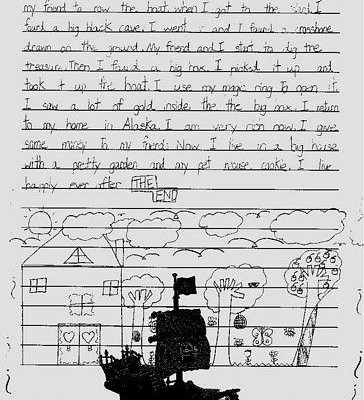 my friend to row the boat. when I got to the island. I
found a big black cave. I went and I found a
drawn on the ground. My friend and I start to dig the
treasure. Then I found a big box. I picked it up and
took it up the boat. I use my magic ring To open it
I saw a lot of gold inside the the big box. I return
to my home in Alaska. I am very rich now. I give
some money to my friends. Now I live in a big house
with a pretty garden and my pet mouse cookie. I live
happily ever after THE
END